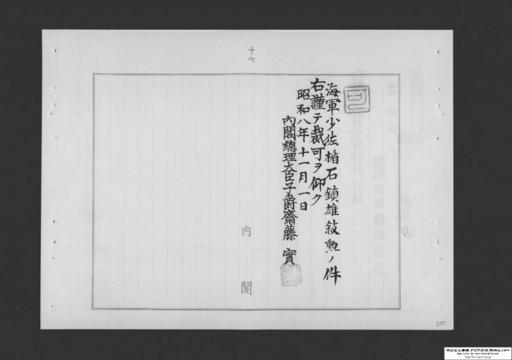 十七
海軍少佐楢石鎮雄敍勲ノ件
右謹テ裁可ヲ仰ク
昭和八年十一月一日
内閣總理大臣子爵齋藤實
内閣